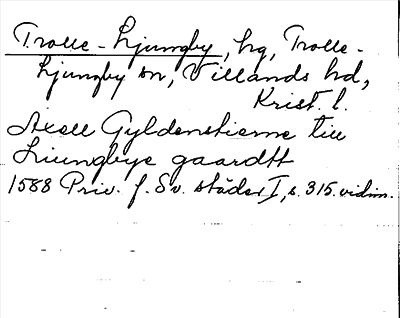 Trolle-Ljungby, hg, Trolle-
Ljungby sn, Villands hd,
Krist. l.
Axell Gyldenstierne till
Liungbye gaardtt
1588 Priv. f. Sv. städer I, s. 315. vidim.